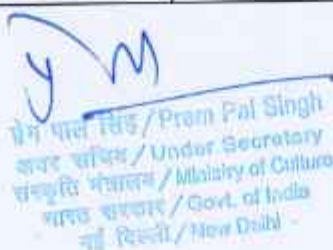 प्रेम पाल सिंह/Prem Pal Singh
अवर सचिव/Under Secretary
संस्कृति मंत्रालय/Ministry of Culture
भारत सरकार/Govt. of India
नई दिल्ली/New Delhi